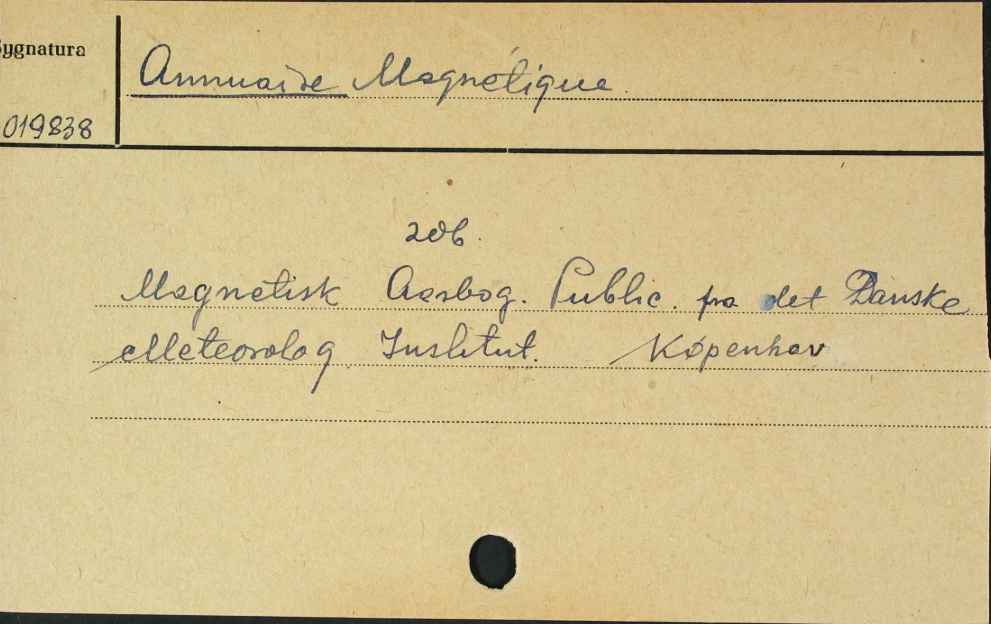 Sygnatura
Annuaire Magnétique.
019838
zob.
Magnetisk Aarbog. Public. fra det Danske
Meteorolog Institut. Köpenhav